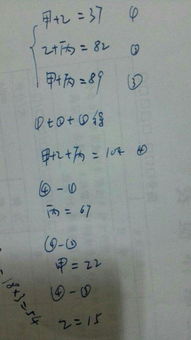 甲+乙=37 ①
乙+丙=82 ②
甲+丙=89 ③
①+②+③得
甲+乙+丙=104 ④
④-①
丙=67
④-②
甲=22
④-③
乙=15